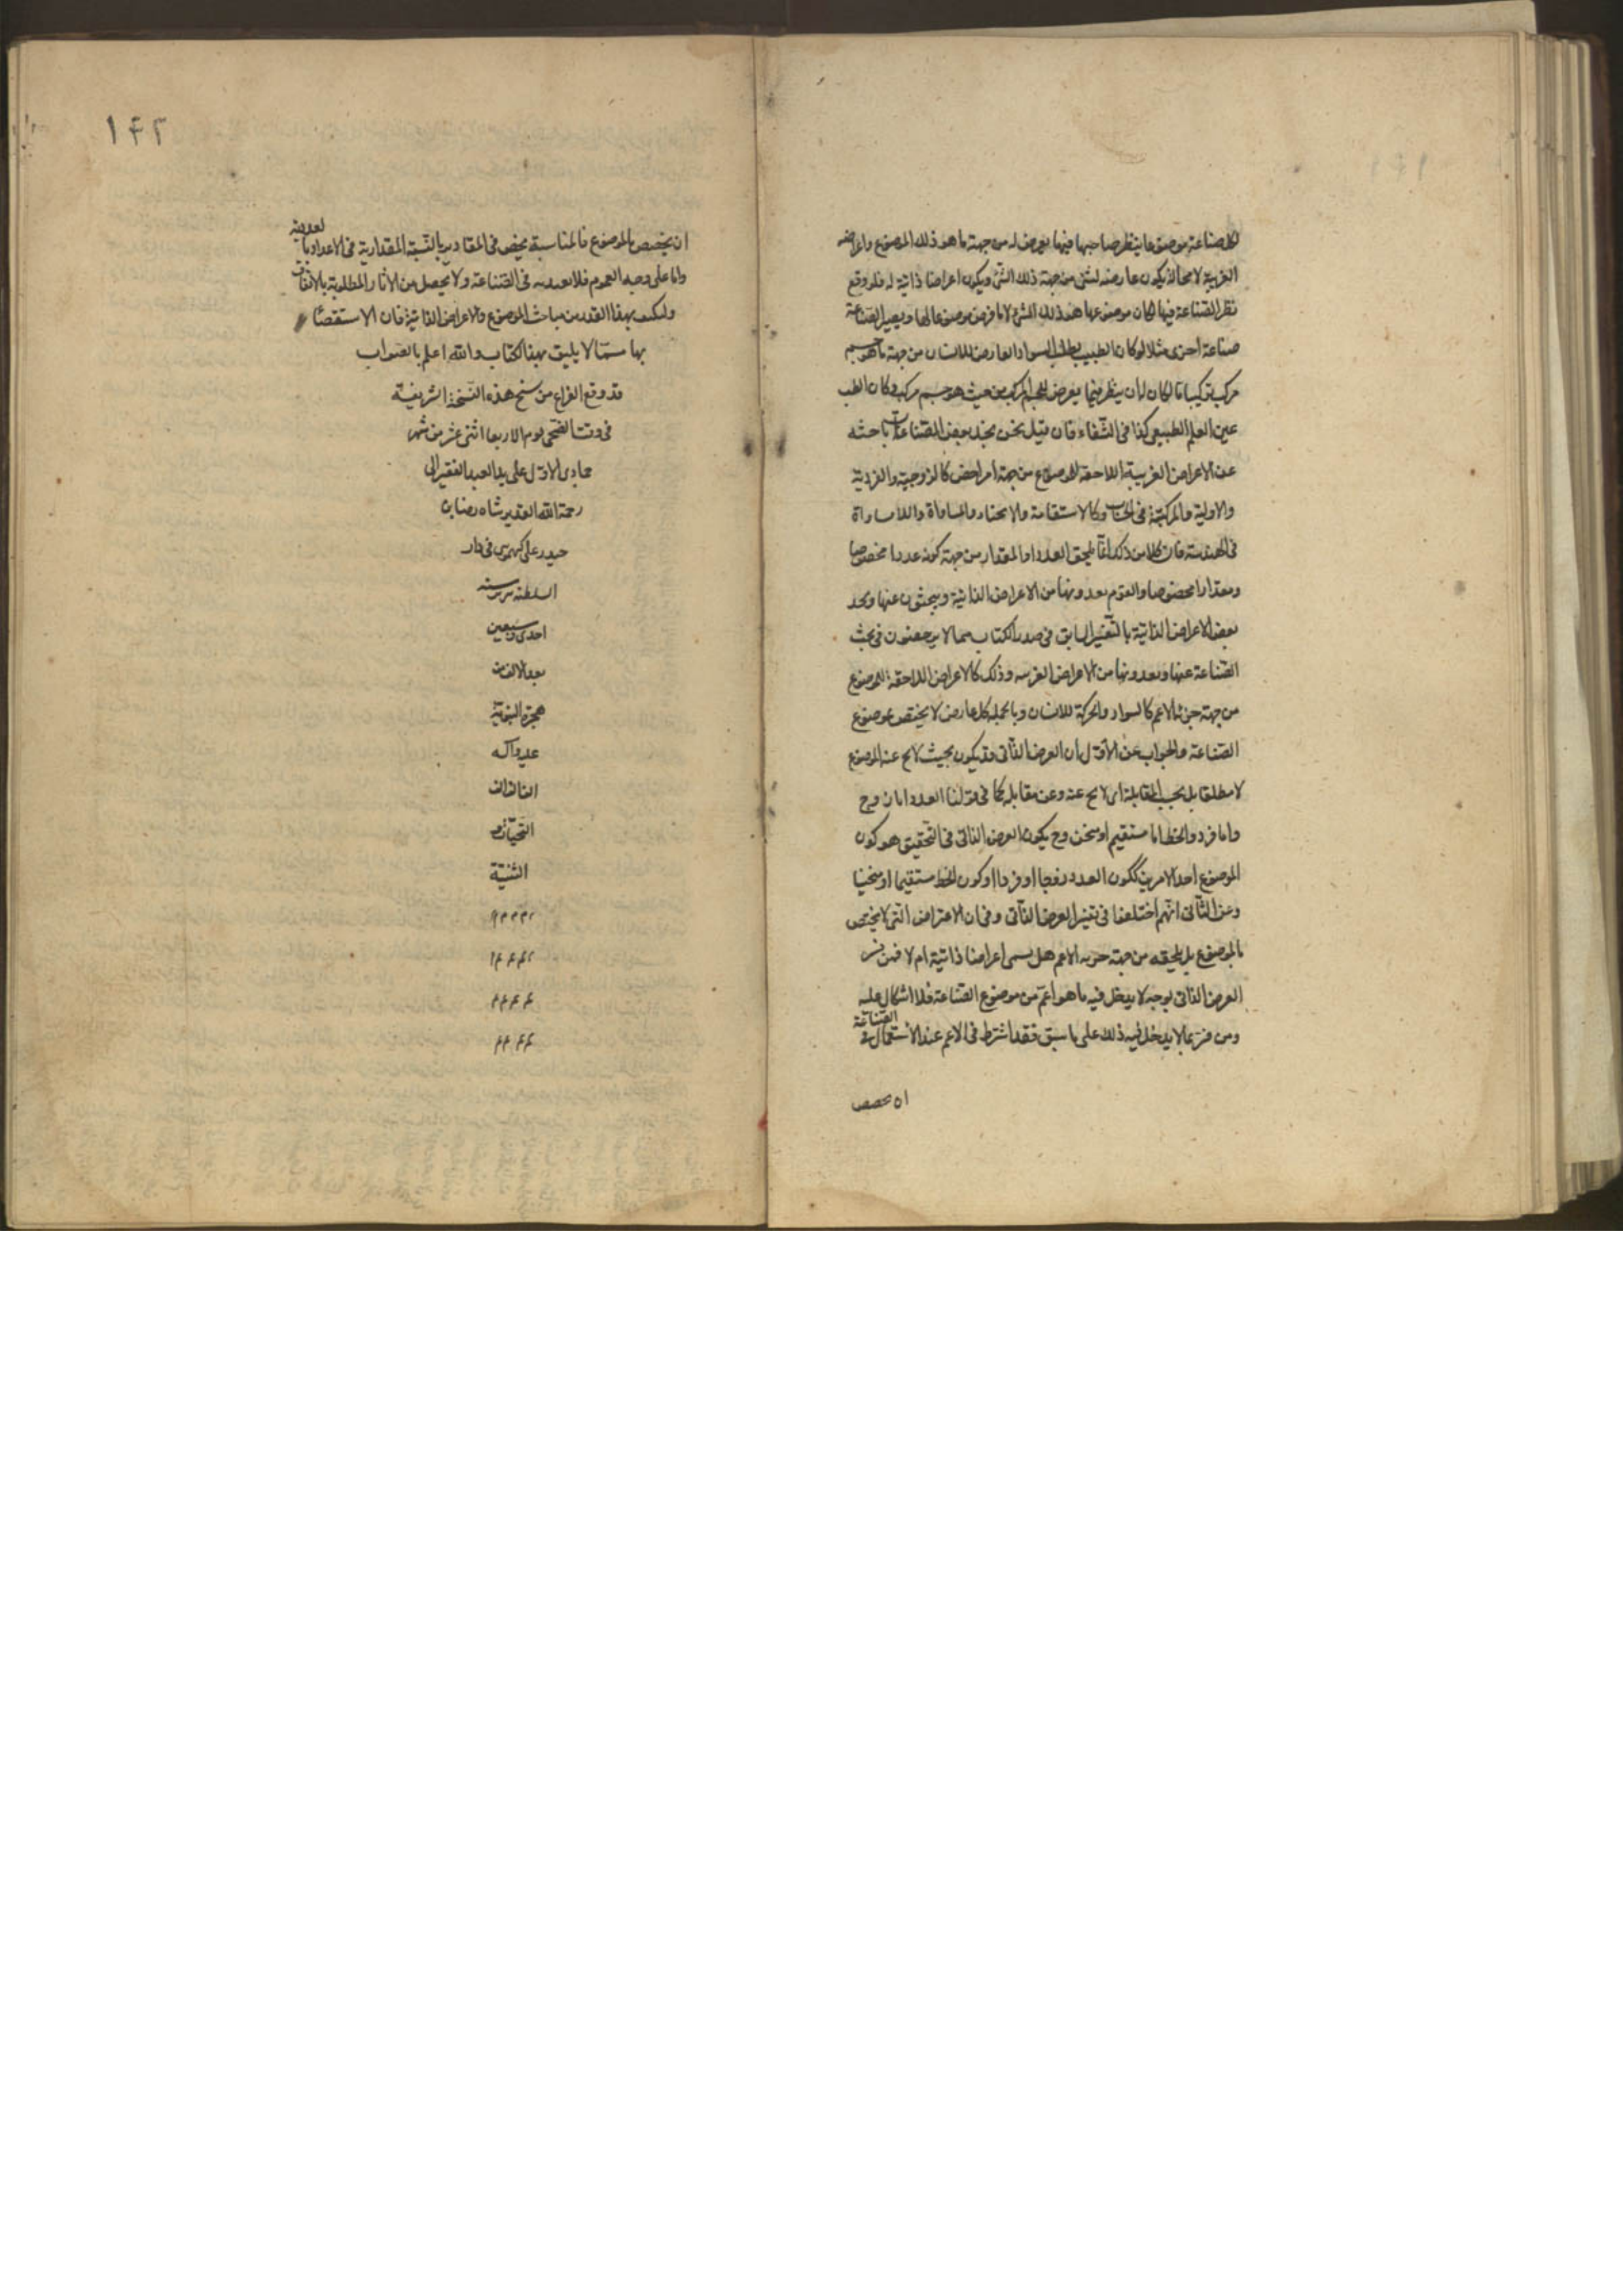 لكل صناعة موضوعا ينظر صاحبها فيما يعرض له من جهة ما هو ذلك الموضوع واعراضه
الغريبة لا محالة يكون عارضه لشئ من جهة ذلك الشئ ويكون اعراضا ذاتية له فلو وقع
نظر الصناعة فيها لكان موضوعها هو ذلك الشئ لا ما فرض موضوعا لها ويصير الصناعة
صناعة اخرى مثلا لو كان الطبيب يطلب السواد العارض للانسان من جهة ما هو جسم
مركب تركيبا ما لكان له ان ينظر فيما يعرض للجسم المركب من حيث هو جسم مركب وكان الطب
عين العلم الطبيعى كذا فى الشفاء فان قيل نحن نجد بعض الصناعات باحثه
عن الاعراض الغريبة اللاحقة للموضوع من جهة امر اخص كالزوجية والفردية
والاولية والمركبية فى الحساب وكالاستقامة والانحناء والمساواة واللامساواة
فى الهندسة فان كلا من ذلك انما يلحق العدد او المقدار من جهة كونه عددا مخصوصا
ومقدارا مخصوصا والقوم يعدونها من الاعراض الذاتية ويبحثون عنها ونجد
بعض الاعراض الذاتية بالتفسير السابق فى صدر الكتاب مما لا يرخصون فى بحث
الصناعة عنها ويعدونها من الاعراض الغريبه وذلك كالاعراض اللاحقة للموضوع
من جهة جزئه الاعم كالسواد والحركة للانسان وبالجملة كل عارض لا يختص بموضوع
الصناعة والجواب عن الاول ان العرض الذاتى قد يكون بحيث لا يخ عنه الموضوع
لا مطلقا بل بحسب المقابلة اى لا يخ عنه وعن مقابله كما فى قولنا العدد اما زوج
واما فرد والخط اما مستقيم او منحن وح يكون العرض الذاتى فى التحقيق هو كون
الموضوع احد الامرين ككون العدد زوجا او فردا او كون الخط مستقيما او منحنيا
وعن الثانى انهم اختلفوا فى تفسير العرض الذاتى وفى ان الاعراض التى لا يختص
بالموضوع بل يلحقه من جهة جزئه الاعم هل يسمى اعراضا ذاتية ام لا فمن فسر
العرض الذاتى بوجه لا يدخل فيه ما هو اعم من موضوع الصناعة فلا اشكال عليه
ومن فسر بما يدخل فيه ذلك على ما سبق فقد اشترط فى الاعم عند الاستعمال فى الصناعة
ان يخصص
١٤٢
ان يخصص بالموضوع فالمناسبة يخص فى المقادير بالنسبة المقدارية وفى الاعداد بالعددية
واما على وجه العموم فلا يعد به فى الصناعة ولا يحصل من الاثار المطلوبة بالاتفاق
وليكتف بهذا القدر من مباحث الموضوع والاعراض الذاتية فان الاستقصاء
بها مما لا يليق بهذا الكتاب والله اعلم بالصواب
قد وقع الفراغ من نسخ هذه النسخة الشريفة
فى وقت الضحى يوم الاربعا اثنى عشر من شهر
جمادى الاول على يد العبد الفقير الى
رحمة الله القدير شاه رضا بن
حيدر على فى دار
السلطنه سنه
احدى وسبعين
بعد الالف من
هجرة النبوية
عليه واله
الف الف
التحيات